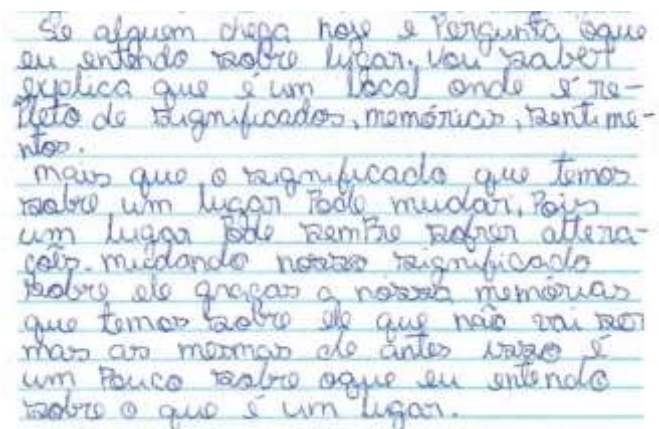 Se alguem chega hoje e Pergunta oque
eu entendo sobre lugar. Vou saber
explica que é um local onde é re-
pleto de significados, memórias, sentime-
ntos.
mais que o significado que temos
sobre um lugar Pode mudar, Pois
um lugar Pode sempre sofrer altera-
ções. mudando nosso significado
sobre ele graças a nossa memórias
que temos sobre ele que não vai ser
mas as mesmas de antes isso é
um Pouco sobre oque eu entendo
sobre o que é um lugar.